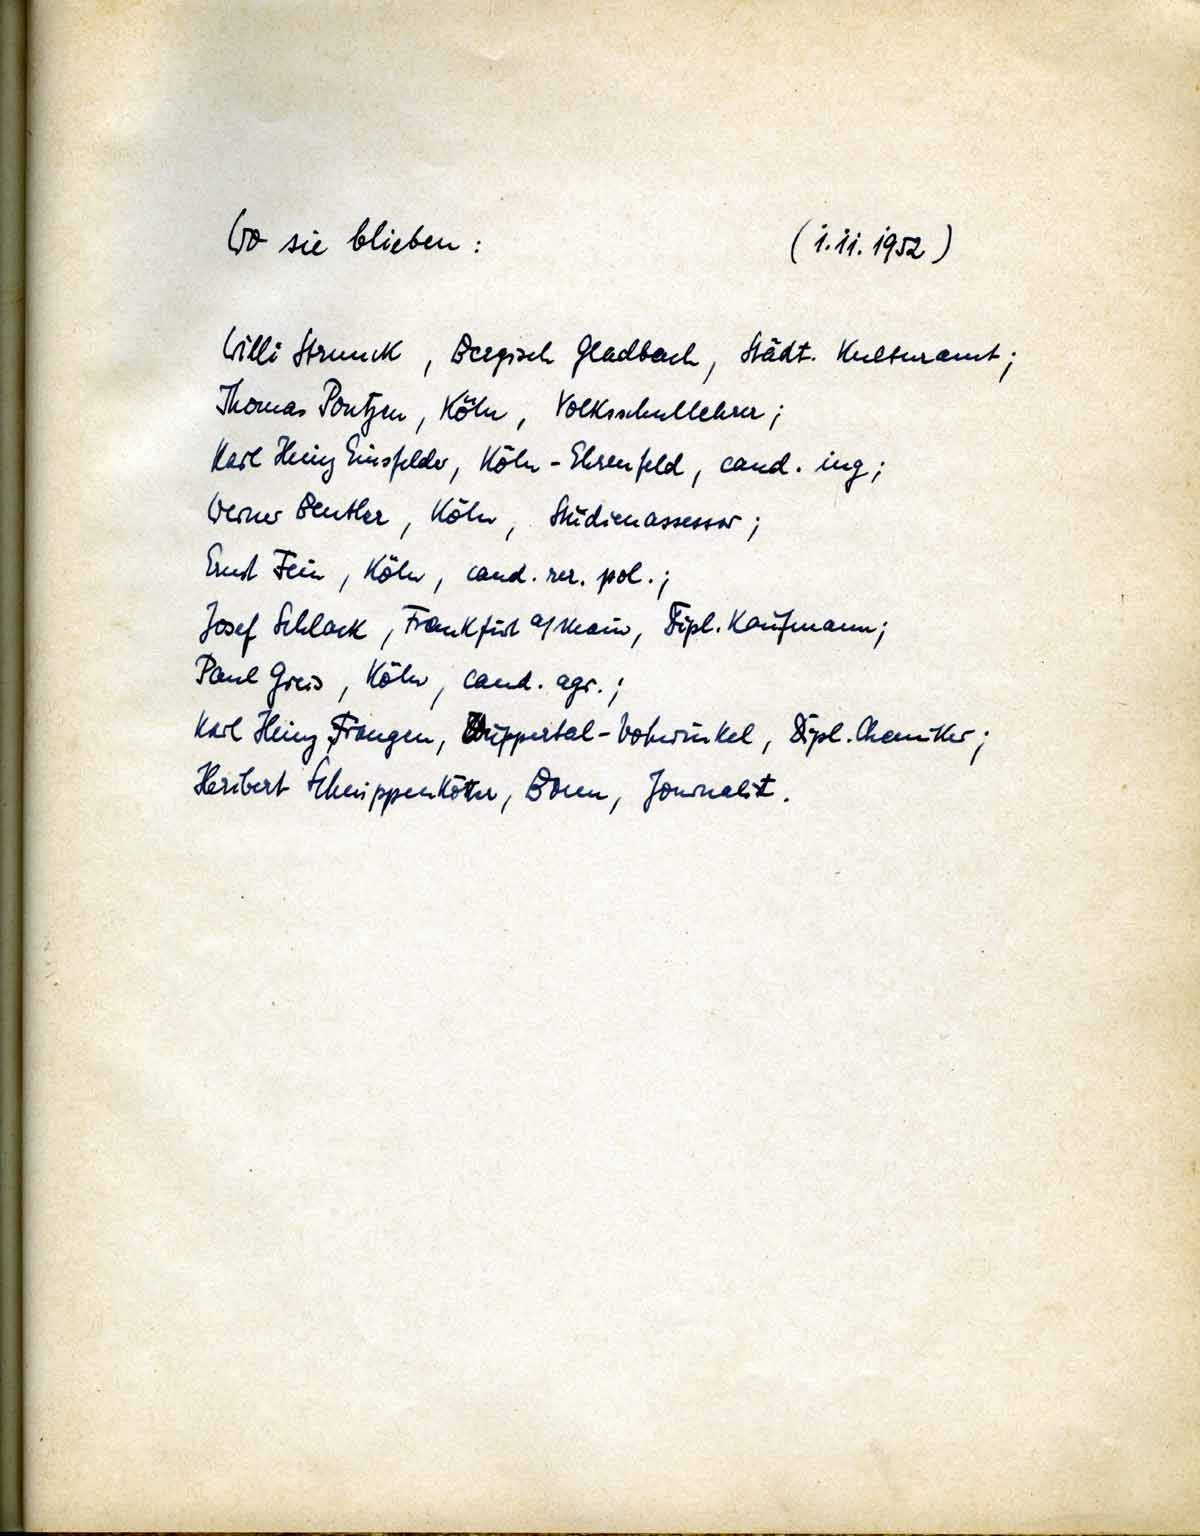 Wo sie blieben: (1.11.1952)
Willi Strunck, Bergisch Gladbach, Städt. Kulturamt;
Thomas Pontzen, Köln, Volksschullehrer;
Karl Heinz Einsfelder, Köln-Ehrenfeld, cand. ing;
Werner Beutler, Köln, Studienassessor;
Ernst Fein, Köln, cand. rer. pol.;
Josef Schlack, Frankfurt a/Main, Dipl. Kaufmann;
Paul Greis, Köln, cand. agr.;
Karl Heinz Frangen, Wuppertal-Vohwinkel, Dipl. Chemiker;
Heribert Schnippenkötter, Bonn, Journalist.